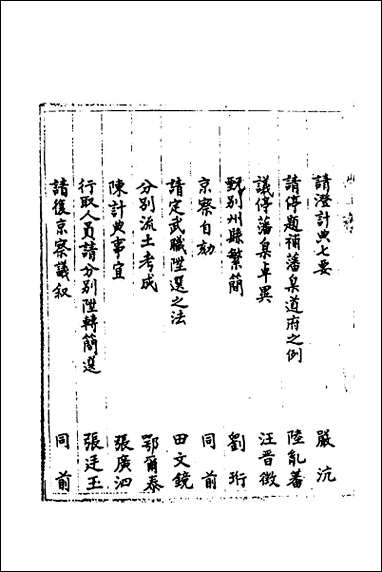 請澄計典七要 嚴沆
請停題補藩臬道府之例 陸亂蕃
議停藩臬卓異 汪晋徵
甄別州縣繁簡 劉珩
京察自劾 同前
請定武職陞選之法 田文鏡
分別流土考成 鄂爾泰
陳計典事宜 張廣泗
行取人員請分別陞轉簡選 張廷玉
請復京察議叙 同前